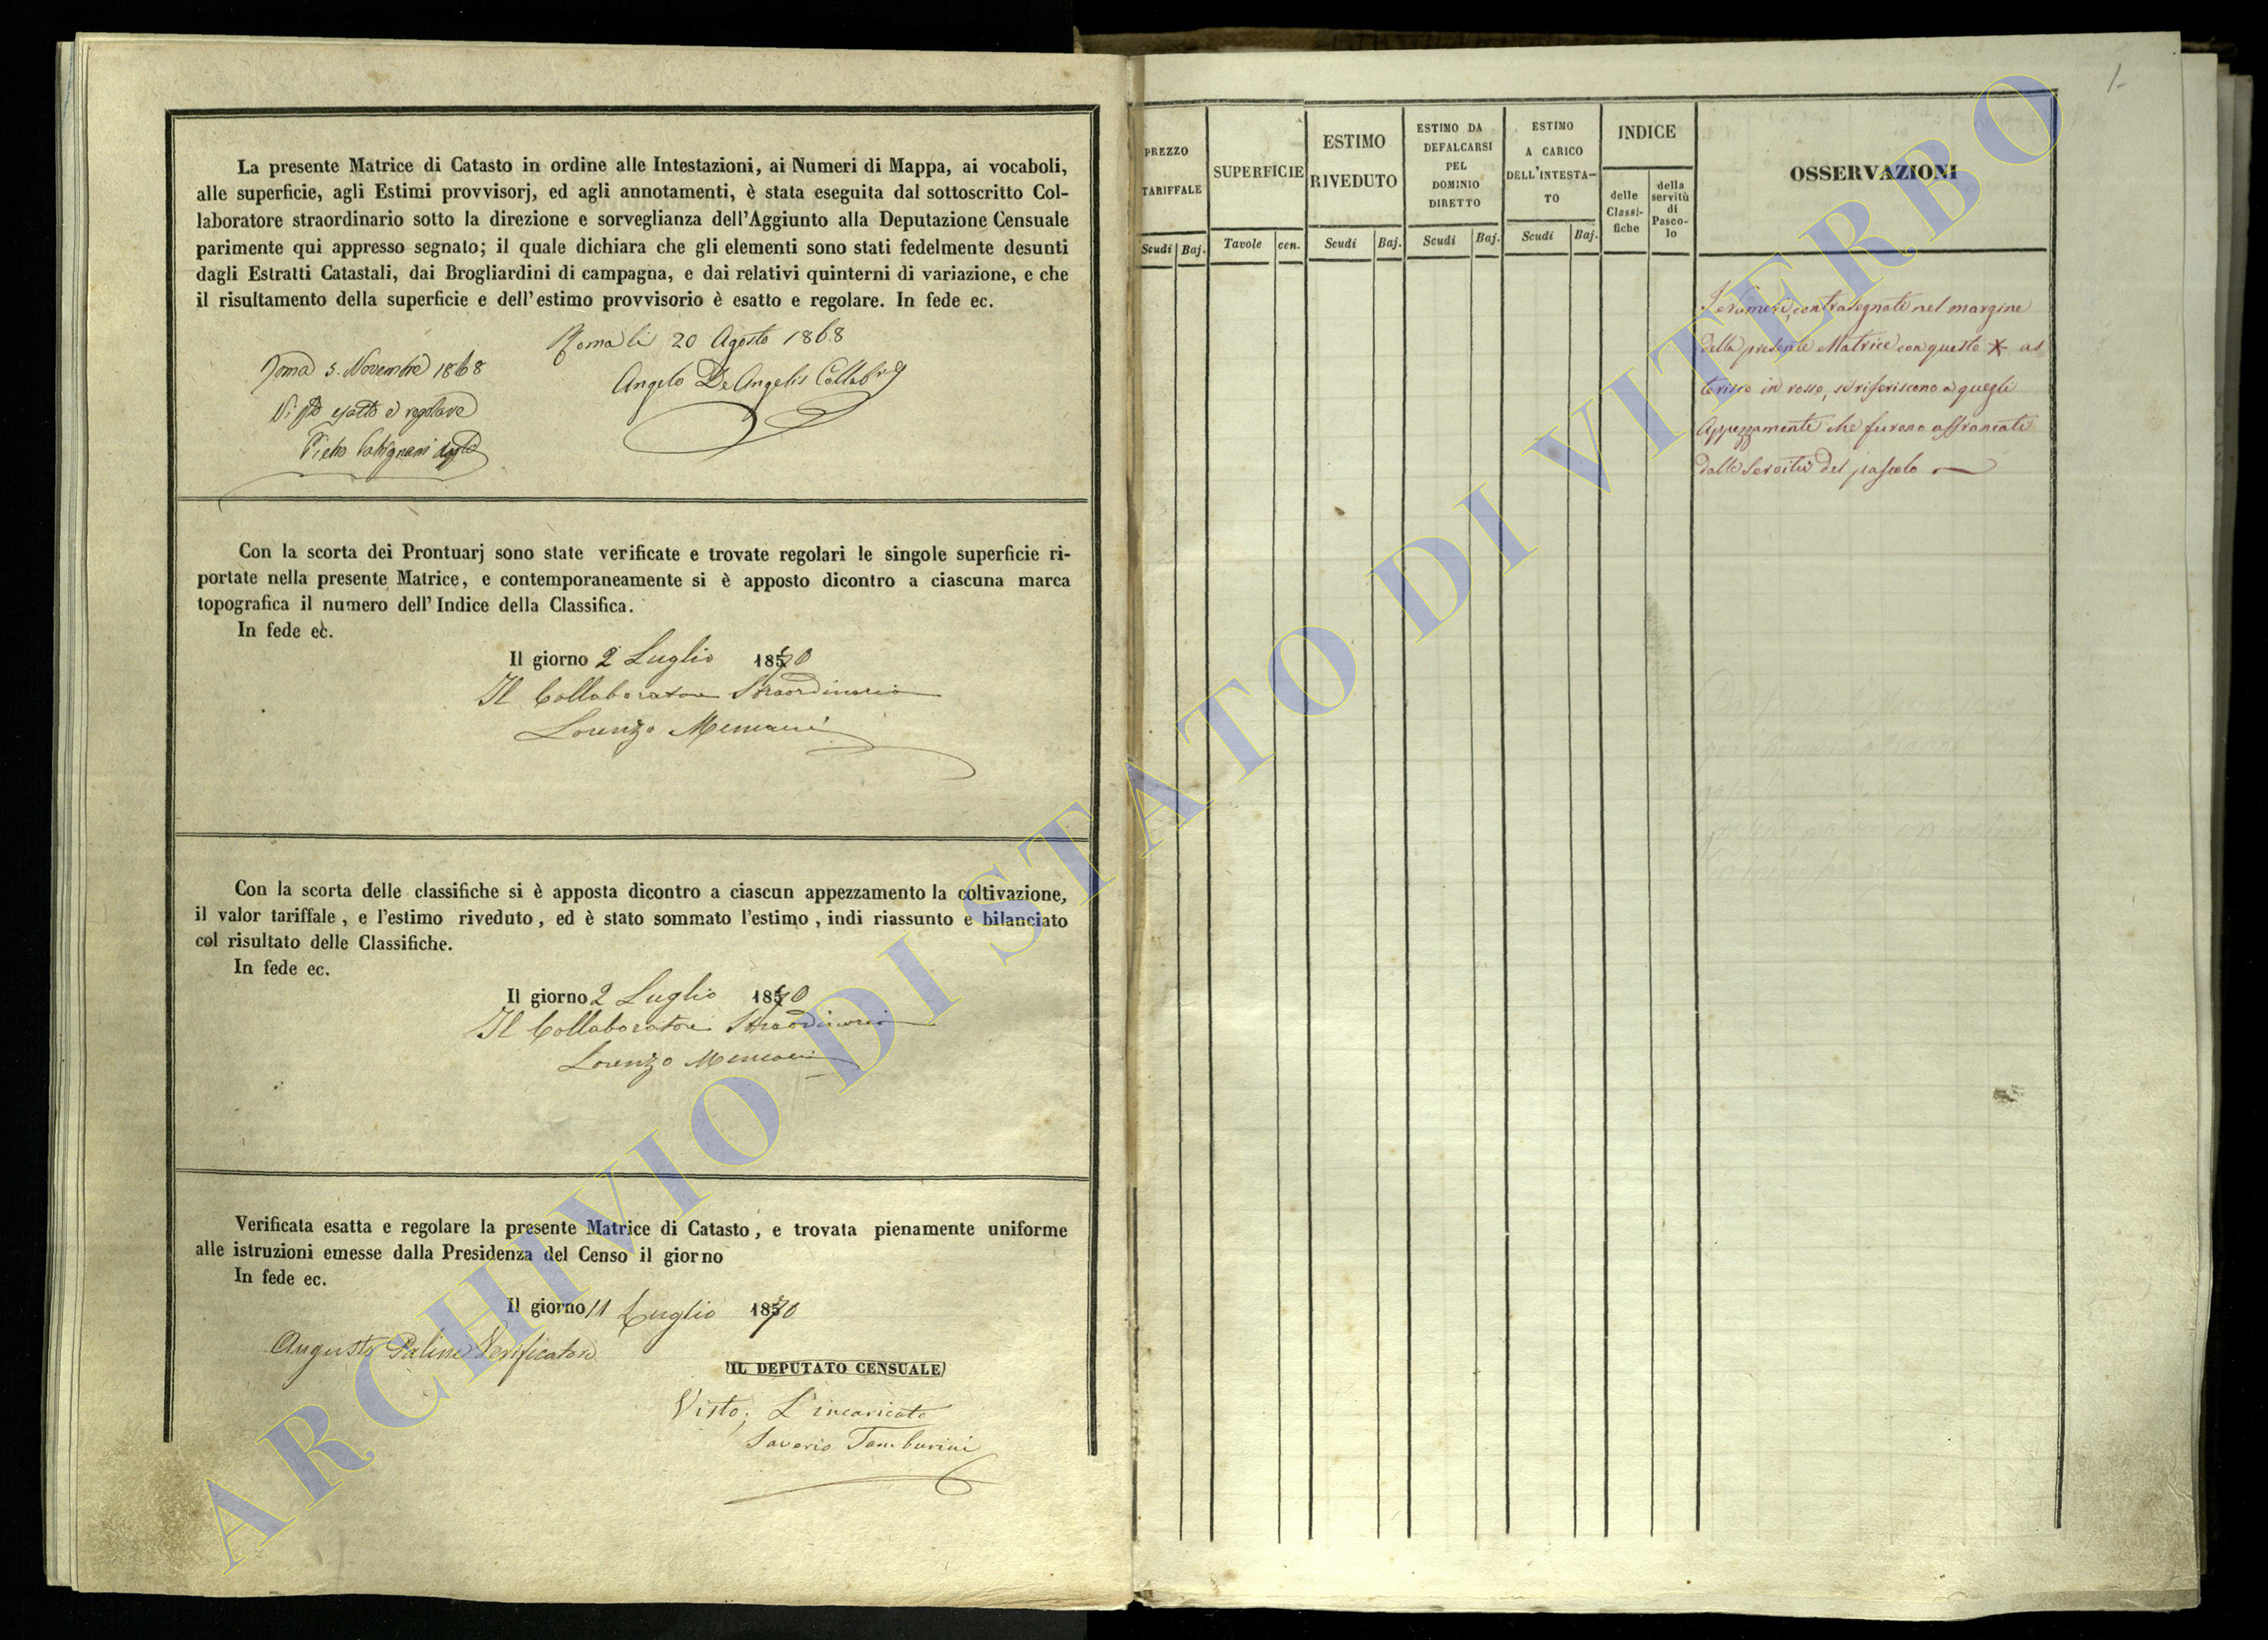 La presente Matrice di Catasto in ordine alle Intestazioni, ai Numeri di Mappa, ai vocaboli,
alle superficie, agli Estimi provvisorj, ed agli annotamenti, è stata eseguita dal sottoscritto Col-
laboratore straordinario sotto la direzione e sorveglianza dell'Aggiunto alla Deputazione Censuale
parimente qui appresso segnato; il quale dichiara che gli elementi sono stati fedelmente desunti
dagli Estratti Catastali, dai Brogliardini di campagna, e dai relativi quinterni di variazione, e che
il risultamento della superficie e dell'estimo provvisorio è esatto e regolare. In fede ec.
Roma li 20 Agosto 1868
Angelo De Angelis Collab.
Roma 5. Novembre 1868
Visto esatto e regolare
Pietro
Con la scorta dei Prontuarj sono state verificate e trovate regolari le singole superficie ri-
portate nella presente Matrice, e contemporaneamente si è apposto dicontro a ciascuna marca
topografica il numero dell'Indice della Classifica.
In fede ec.
Il giorno 2 Luglio 1870
Il Collaboratore Straordinario
Lorenzo
Con la scorta delle classifiche si è apposta dicontro a ciascun appezzamento la coltivazione,
il valor tariffale, e l'estimo riveduto, ed è stato sommato l'estimo, indi riassunto e bilanciato
col risultato delle Classifiche.
In fede ec.
Il giorno 2 Luglio 1870
Il Collaboratore Straordinario
Lorenzo
Verificata esatta e regolare la presente Matrice di Catasto, e trovata pienamente uniforme
alle istruzioni emesse dalla Presidenza del Censo il giorno
In fede ec.
Il giorno 11 Luglio 1870
Augusto Verificatore
IL DEPUTATO CENSUALE
Visto, L'incaricato
Saverio Tamburini
1
PREZZO
TARIFFALE
SUPERFICIE
ESTIMO
RIVEDUTO
ESTIMO DA
DEFALCARSI
PEL
DOMINIO
DIRETTO
ESTIMO
A CARICO
DELL'INTESTA-
TO
INDICE
delle
Classi-
fiche
della
servitù
di
Pasco-
lo
OSSERVAZIONI
Scudi Baj. Tavole cen. Scudi Baj. Scudi Baj. Scudi Baj.
I Numeri, contrasegnati nel margine
della presente Matrice con questo * as
terisco in rosso, si riferiscono a quegli
Appezzamenti che furono affrancati
dalla Servitù del pascolo
ARCHIVIO DI STATO DI VITERBO